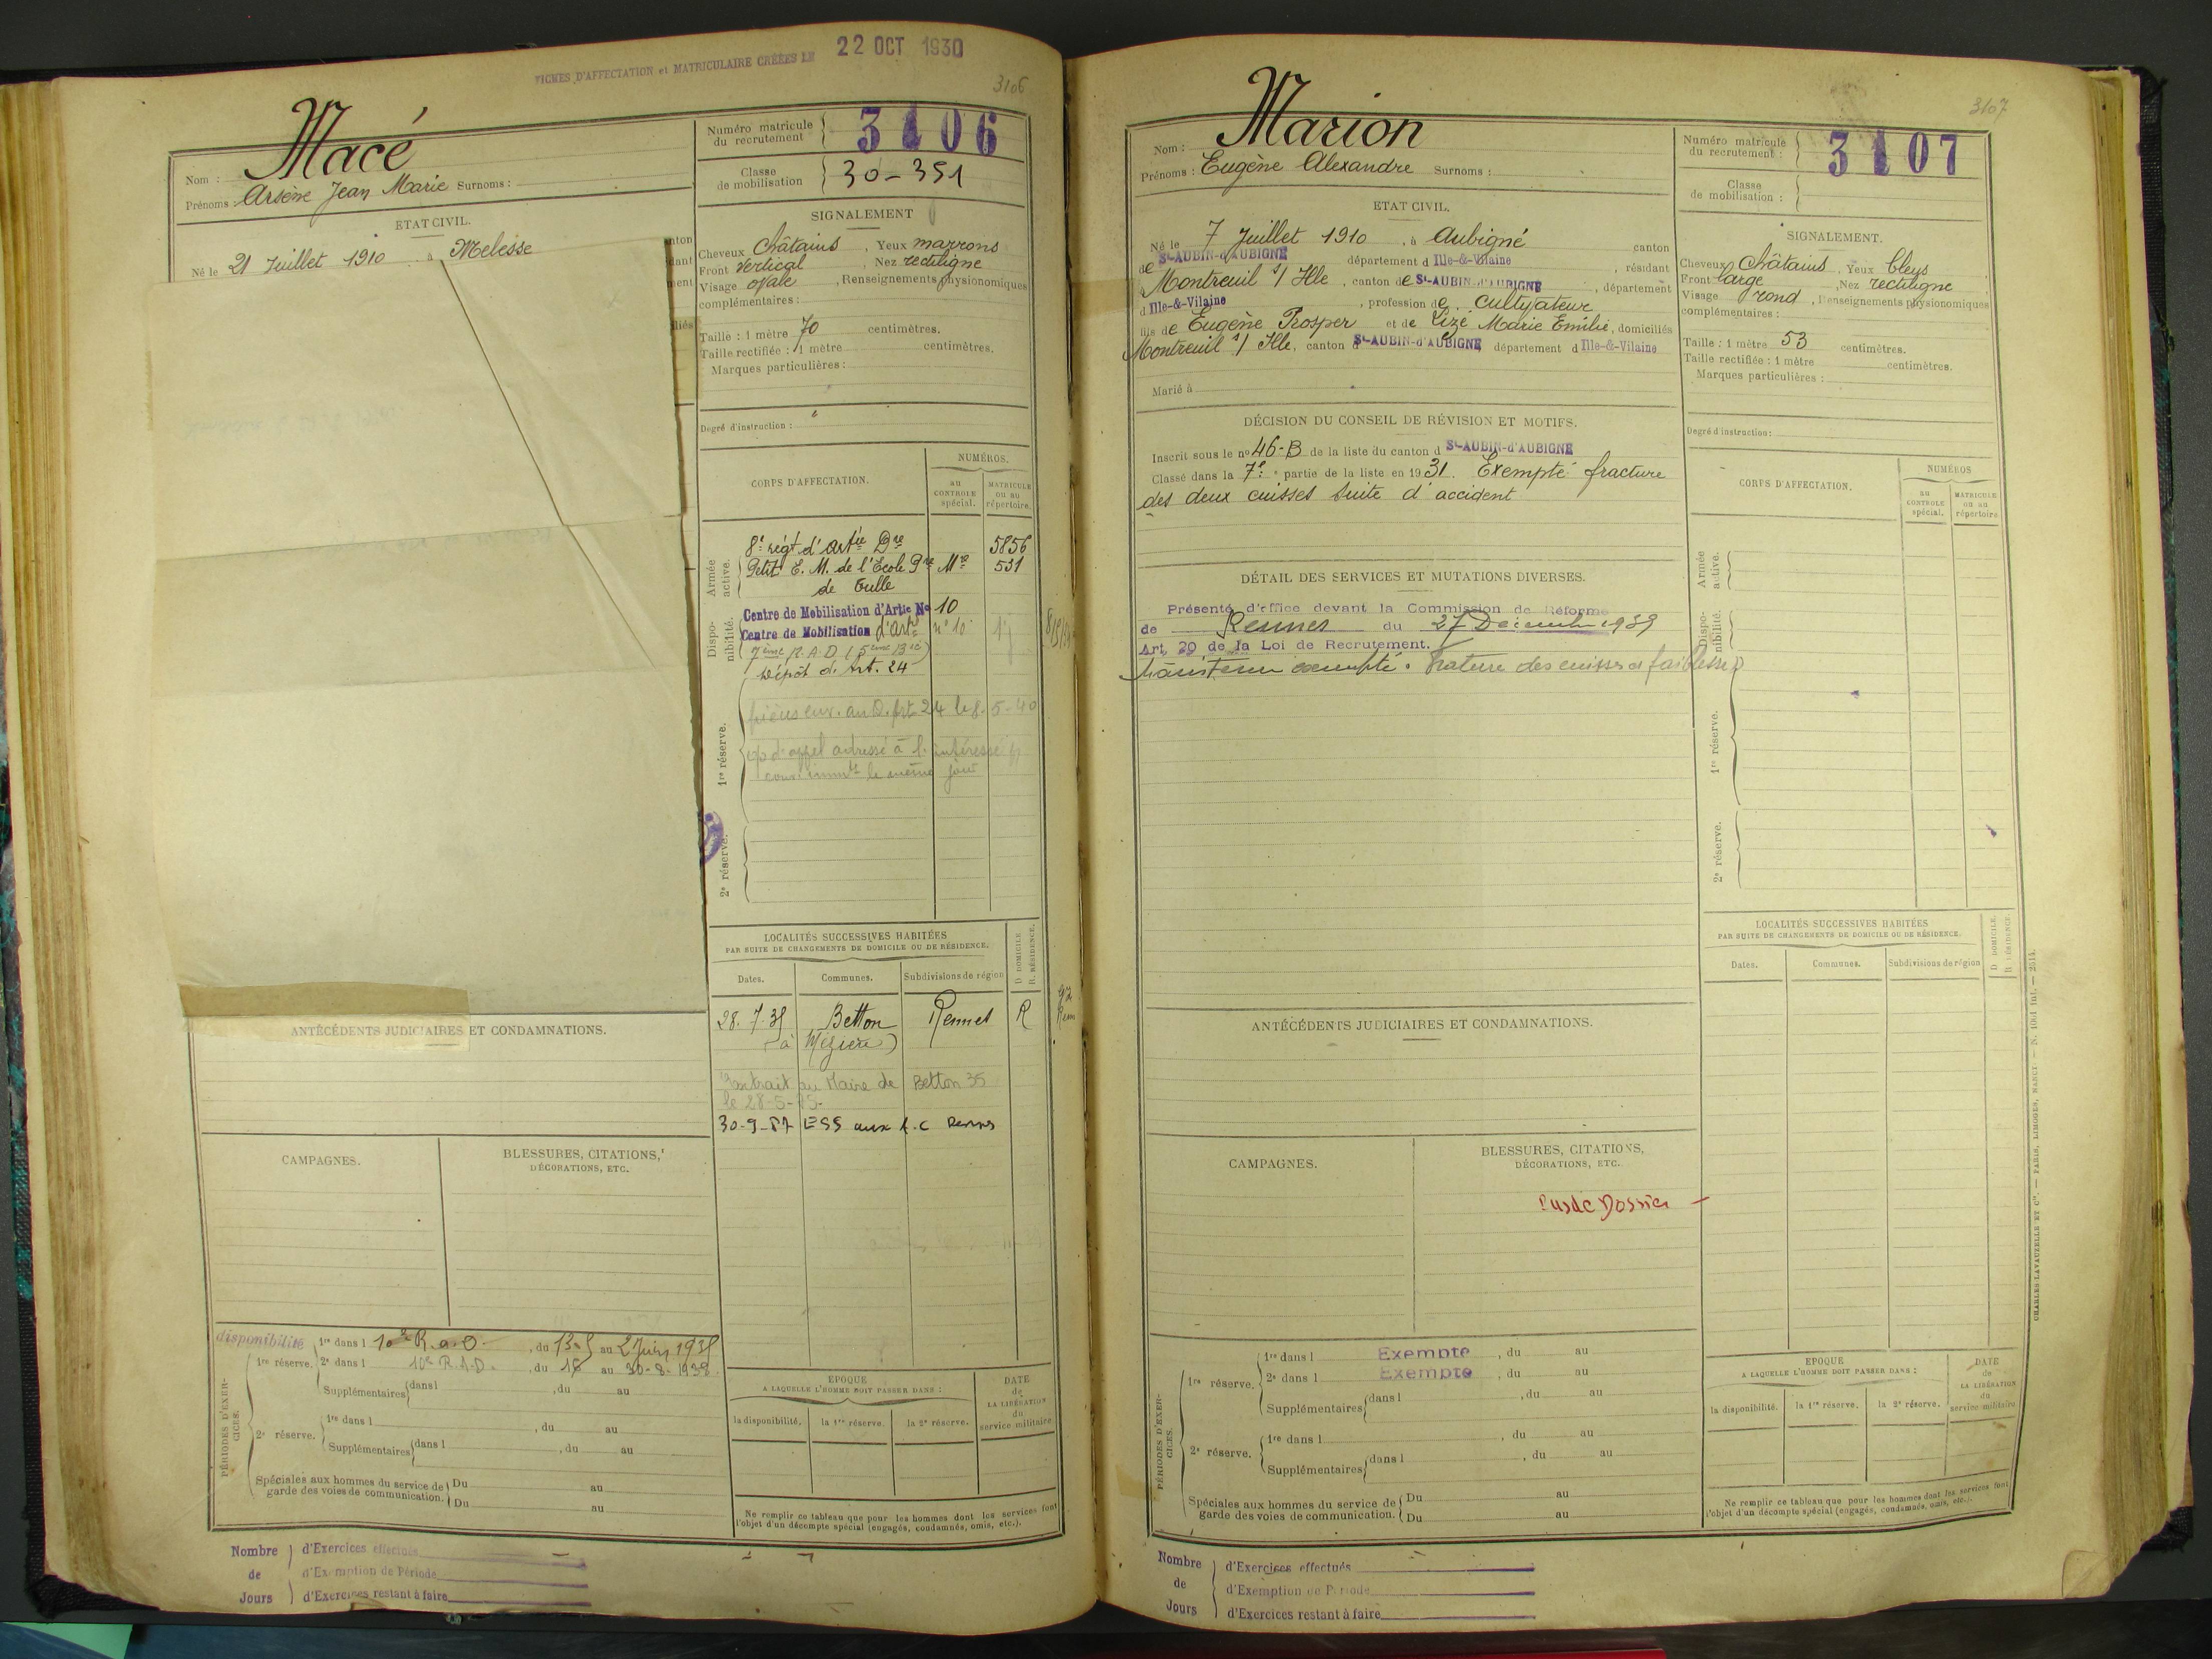 FICHES D'AFFECTATION et MATRICULAIRE CRÉÉES LE 22 OCT 1930
3106
Nom : Macé
Prénoms : Arsène Jean Marie Surnoms :
Numéro matricule du recrutement 3106
Classe de mobilisation 30-351
ETAT CIVIL.
Né le 21 Juillet 1910 à Melesse
SIGNALEMENT
Cheveux Châtains, Yeux marrons
Front Vertical, Nez rectiligne
Visage ovale, Renseignements physionomiques
complémentaires :
Taille : 1 mètre 70 centimètres.
Taille rectifiée : 1 mètre centimètres.
Marques particulières :
Degré d'instruction :
CORPS D'AFFECTATION.
NUMÉROS.
au CONTROLE spécial.
MATRICULE ou au répertoire.
Armée active.
8e régt d'Artie Dre 5856
Petit E. M. de l'Ecole Pre Mre 531
de Tulle
Disponibilité.
Centre de Mobilisation d'Artie No 10
Centre de Mobilisation d'Artie n° 10
Dépôt d. Art. 24
1re réserve.
le 8-5-40
le même jour
2e réserve.
LOCALITÉS SUCCESSIVES HABITÉES
PAR SUITE DE CHANGEMENTS DE DOMICILE OU DE RÉSIDENCE.
D DOMICILE. R RÉSIDENCE.
Dates. Communes. Subdivisions de région
Betton Rennes R
au Maire de Betton 35
ESS aux Rennes
ANTÉCÉDENTS JUDICIAIRES ET CONDAMNATIONS.
CAMPAGNES.
BLESSURES, CITATIONS, DÉCORATIONS, ETC.
PÉRIODES D'EXERCICES.
disponibilité 1re dans l 10e R.a.D. , du 13-5 au 2 Juin 1935
1re réserve. 2e dans l 10e R.A.D. , du au 30-8-1938.
Supplémentaires dans l , du au
2e réserve. 1re dans l , du au
Supplémentaires dans l , du au
Spéciales aux hommes du service de garde des voies de communication. Du au
Du au
EPOQUE
A LAQUELLE L'HOMME DOIT PASSER DANS :
la disponibilité. la 1re réserve. la 2e réserve.
DATE de LA LIBÉRATION du service militaire
Ne remplir ce tableau que pour les hommes dont les services font
l'objet d'un décompte spécial (engagés, condamnés, omis, etc.).
Nombre de Jours
d'Exercices effectués
d'Exemption de Période
d'Exercices restant à faire
3107
Nom : Marion
Prénoms : Eugène Alexandre Surnoms :
Numéro matricule du recrutement : 3107
Classe de mobilisation :
ETAT CIVIL.
Né le 7 Juillet 1910, à Aubigné canton
de St-AUBIN-d'AUBIGNÉ département d Ille-&-Vilaine, résidant
à Montreuil s/ Ille, canton de St-AUBIN-d'AUBIGNÉ, département
d Ille-&-Vilaine, profession de cultivateur
fils de Eugène Prosper et de Lizé Marie Emilie, domiciliés
Montreuil s/ Ille, canton d St-AUBIN-d'AUBIGNÉ département d Ille-&-Vilaine
Marié à
SIGNALEMENT.
Cheveux Châtains, Yeux bleus
Front large, Nez rectiligne
Visage rond, Renseignements physionomiques
complémentaires :
Taille : 1 mètre 53 centimètres.
Taille rectifiée : 1 mètre centimètres.
Marques particulières :
Degré d'instruction :
DÉCISION DU CONSEIL DE RÉVISION ET MOTIFS.
Inscrit sous le n° 46-B de la liste du canton d St-AUBIN-d'AUBIGNÉ
Classé dans la 7e partie de la liste en 1931. Exempté fracture
des deux cuisses suite d'accident
DÉTAIL DES SERVICES ET MUTATIONS DIVERSES.
Présenté d'office devant la Commission de Réforme
de Rennes du 27 Décembre 1939
Art. 20 de la Loi de Recrutement.
Maintenu exempté. Fracture des cuisses et faiblesse
CORPS D'AFFECTATION.
NUMÉROS
au CONTROLE spécial.
MATRICULE ou au répertoire
Armée active.
Disponibilité.
1re réserve.
2e réserve.
ANTÉCÉDENTS JUDICIAIRES ET CONDAMNATIONS.
LOCALITÉS SUCCESSIVES HABITÉES
PAR SUITE DE CHANGEMENTS DE DOMICILE OU DE RÉSIDENCE.
D DOMICILE. R RÉSIDENCE.
Dates. Communes. Subdivisions de région
CAMPAGNES.
BLESSURES, CITATIONS, DÉCORATIONS, ETC.
Pas de Dossier
PÉRIODES D'EXERCICES.
1re réserve. 1re dans l Exempté, du au
2e dans l Exempté, du au
Supplémentaires dans l , du au
2e réserve. 1re dans l , du au
Supplémentaires dans l , du au
Spéciales aux hommes du service de garde des voies de communication. Du au
Du au
EPOQUE
A LAQUELLE L'HOMME DOIT PASSER DANS :
la disponibilité. la 1re réserve. la 2e réserve.
DATE de LA LIBÉRATION du service militaire
Ne remplir ce tableau que pour les hommes dont les services font
l'objet d'un décompte spécial (engagés, condamnés, omis, etc.).
Nombre de Jours
d'Exercices effectués
d'Exemption de Période
d'Exercices restant à faire
CHARLES-LAVAUZELLE ET Cie. — PARIS, LIMOGES, NANCY